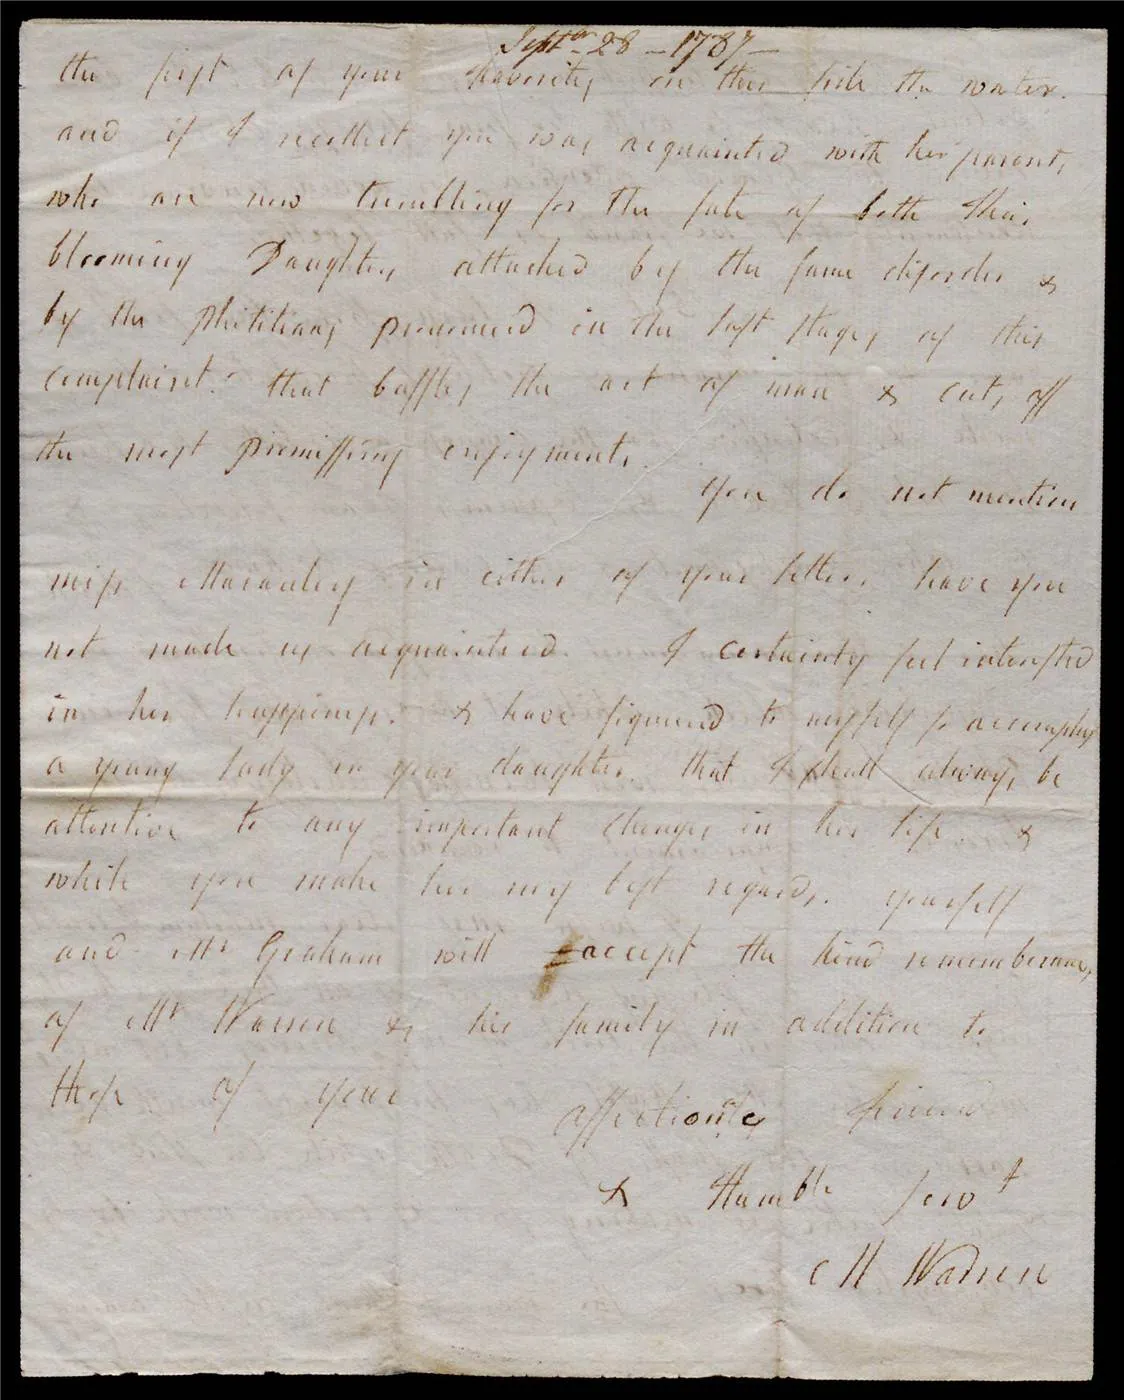 Septbr 28 - 1787 -
the first of your favorites on this side the water.
and if I recollect you was acquainted with her parents
who are now trembling for the fate of both their
blooming Daughters attacked by the same disorder &
by the phisitians pronounced in the last stages of this
complaint. that baffles the art of man & cuts off
the most promissing enjoyments.
you do not mention
miss Macauley in either of your letters. have you
not made us acquainted. I certainly feel interested
in her happiness. & have figured to myself so accomplishd
a young lady in your daughter. that I shall always be
attentive to any important changes in her life. &
while you make her my best regards. yourself
and Mr Graham will accept the kind remembrances
of Mr Warren & his family in addition to
those of your
affectionate friend
& Humble servt
M Warren